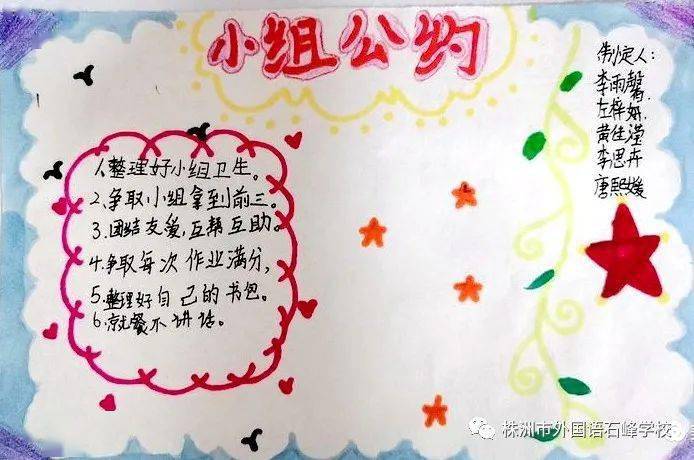 小组公约
制定人:
李雨馨.
左梓妍.
黄佳滢
李思卉
唐熙媛
1.整理好小组卫生。
2.争取小组拿到前三。
3.团结友爱,互帮互助。
4.争取每次作业满分,
5.整理好自己的书包。
6.就餐不讲话。
株洲市外国语石峰学校